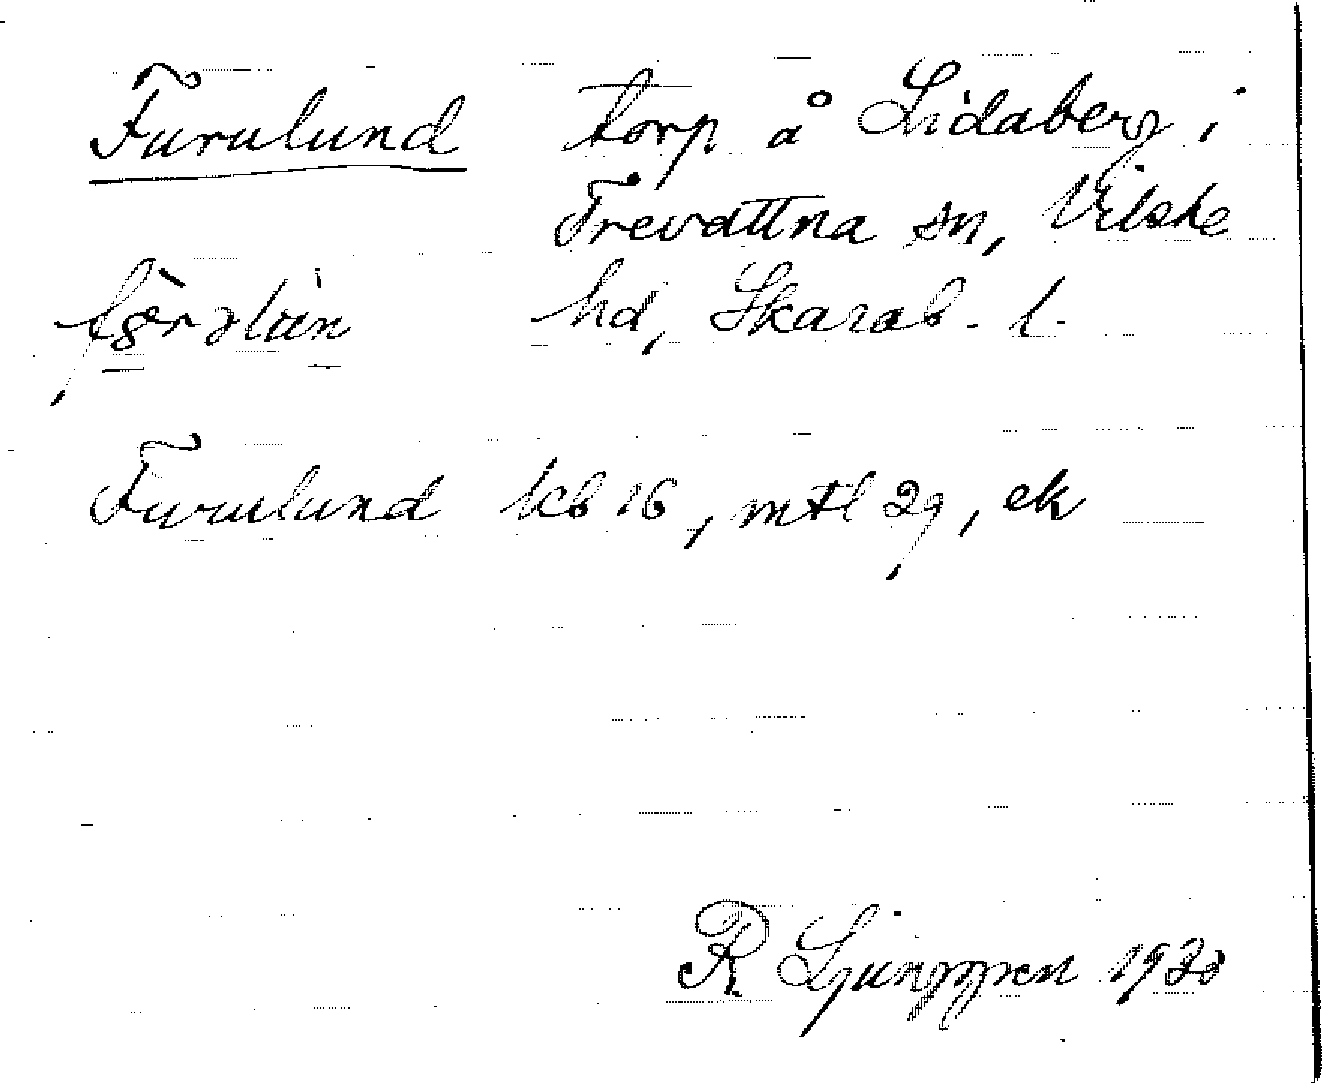 Furulund torp å Lidaberg i
Trevattna sn, Vilske
hd, Skarab. l.
Furulund kcb 16, mtl 29, ek
R Ljunggren 1930